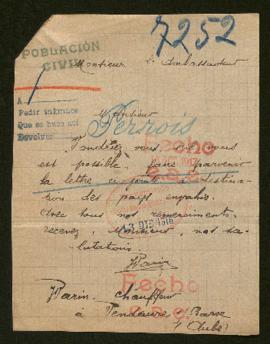 POBLACIÓN
CIVIL
7252
Monsieur l'Ambassadeur
A
Pedir informes
Que se hubo así
Devolver
Monsieur
Pervois
Voudriez vous s'il vous
est possible faire parvenir
la lettre ci-jointe à destina-
tion des pays envahis.
Avec tous nos remerciments
recevez, Monsieur, nos sa-
lutations.
13 DIC 1916
Warin
Fecho
Warin chauffeur
à Vendeuvre s/ Barse
(Aube)